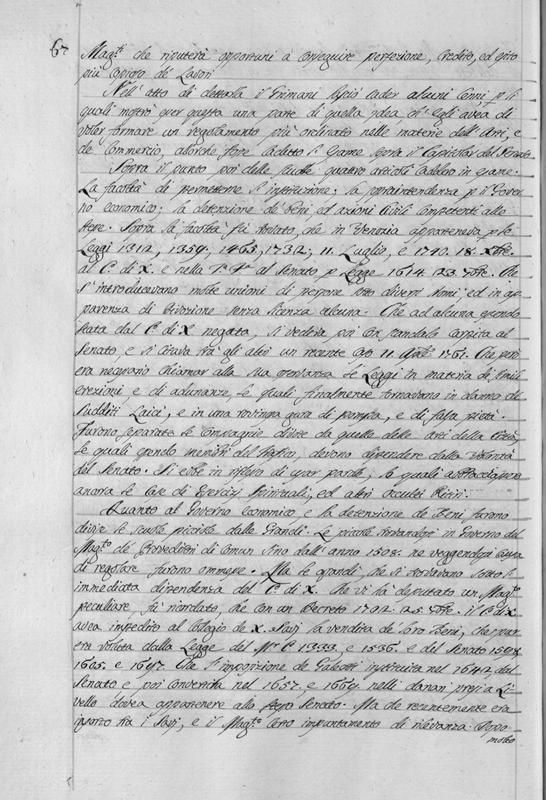 67
Mag.ti che riputerà opportuni à conseguire perfezione, Credito, ed esito
più copioso de' Lavori
Nell' atto di dettarla il Grimani lasciò cader alcuni Cenni p li
quali mostrò esser questa una parte di quella idea, ch' egli avea di
voler formare un regolamento più ordinato nelle materie dell' Arti, e
de Commercio, allorche fosse caduto l' Esame sopra il Capitolar del Senato.
Sopra il punto poi delle scuole quattro articoli caddero in esame.
La facoltà di permetterne l' instituzione: la sopraintendenza p il Gover
no economico; la detenzione de' Beni ed azioni Civili competenti alle
stesse. Sopra la facoltà fù notato, che in Venezia apparteneva p le
Leggi 1312, 1359, 1465, 1732, 11. Luglio, e 1740. 18. Xbre.
al C. di X. e nella T. F. al Senato p Legge 1614. 23. 7bre. Che
s' introducevano molte unioni di persone sotto diversi Nomi, ed in ap
parenza di divozione senza licenza alcuna. Che ad alcuna essendo
stata dal C. di X negata, si vedeva poi con scandalo Concessa dal
Senato, e si citava trà gli altri un recente Caso 11. 1761. Che però
era necessario chiamar alla sua osservanza le Leggi in materia di simili
erezioni, e di adunanze, le quali finalmente tornavano in danno de'
sudditi Laici, e in una rovinosa gara di pompa, e di falsa pietà.
Furono separate le Compagnie divote da quelle delle arti della Città,
le quali essendo membri del Traffico, devono dipendere dalla Volontà
del Senato. Si ebbe in riflesso di usar parole, le quali abbracciassero
ancora le Case di Esercizj Spirituali, ed altri occulti Ritiri.
Quanto al Governo Economico e la detenzione de' Beni furono
divise le scuole piccole dalle Grandi. Le piccole trovandosi in Governo del
Mag.to de' Provveditori di Comun sino dall' anno 1508. ne veggendosi Causa
di regolare furono ommesse. Ma le grandi, che si trovavano sotto l'
immediata dipendenza del C. di X. che vi hà deputato un Mag.to
peculiare, fù ricordato, che con un Decreto 1702. 25. 7bre. il C. di X
avea impedito al Collegio de X. Savj la vendita de' loro Beni, che pur
era voluta dalla Legge del M. C. 1333. e 1536. e del Senato 1598
1605. e 1647. Che l' imposizione de Galeotti instituita nel 1642. dal
Senato e poi convertita nel 1657. e 1669. nelli danari presi a Li
vello dovea appartenere allo stesso Senato. Ma che recentemente era
insorto tra i Savj, e il Mag.to certo impuntamento di rilevanza. Dopo
molto